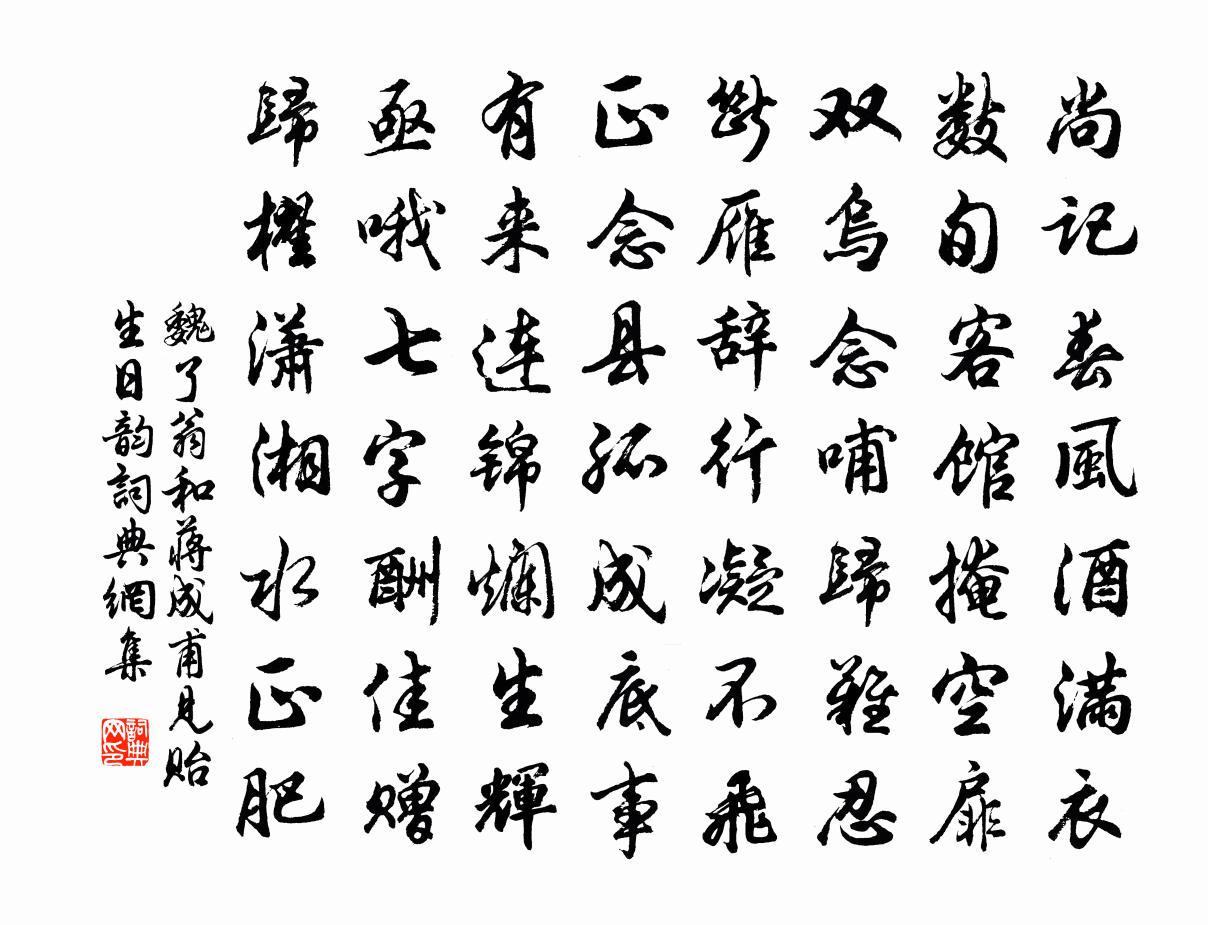 尚记春風酒满衣
数旬客馆掩空扉
双烏念哺歸難忍
断雁辞行凝不飛
正念县孤成底事
有来连锦爛生輝
亟哦七字酬佳赠
歸櫂瀟湘水正肥
魏了翁和蔣成甫見貽
生日韵詞典網集
詞典网印